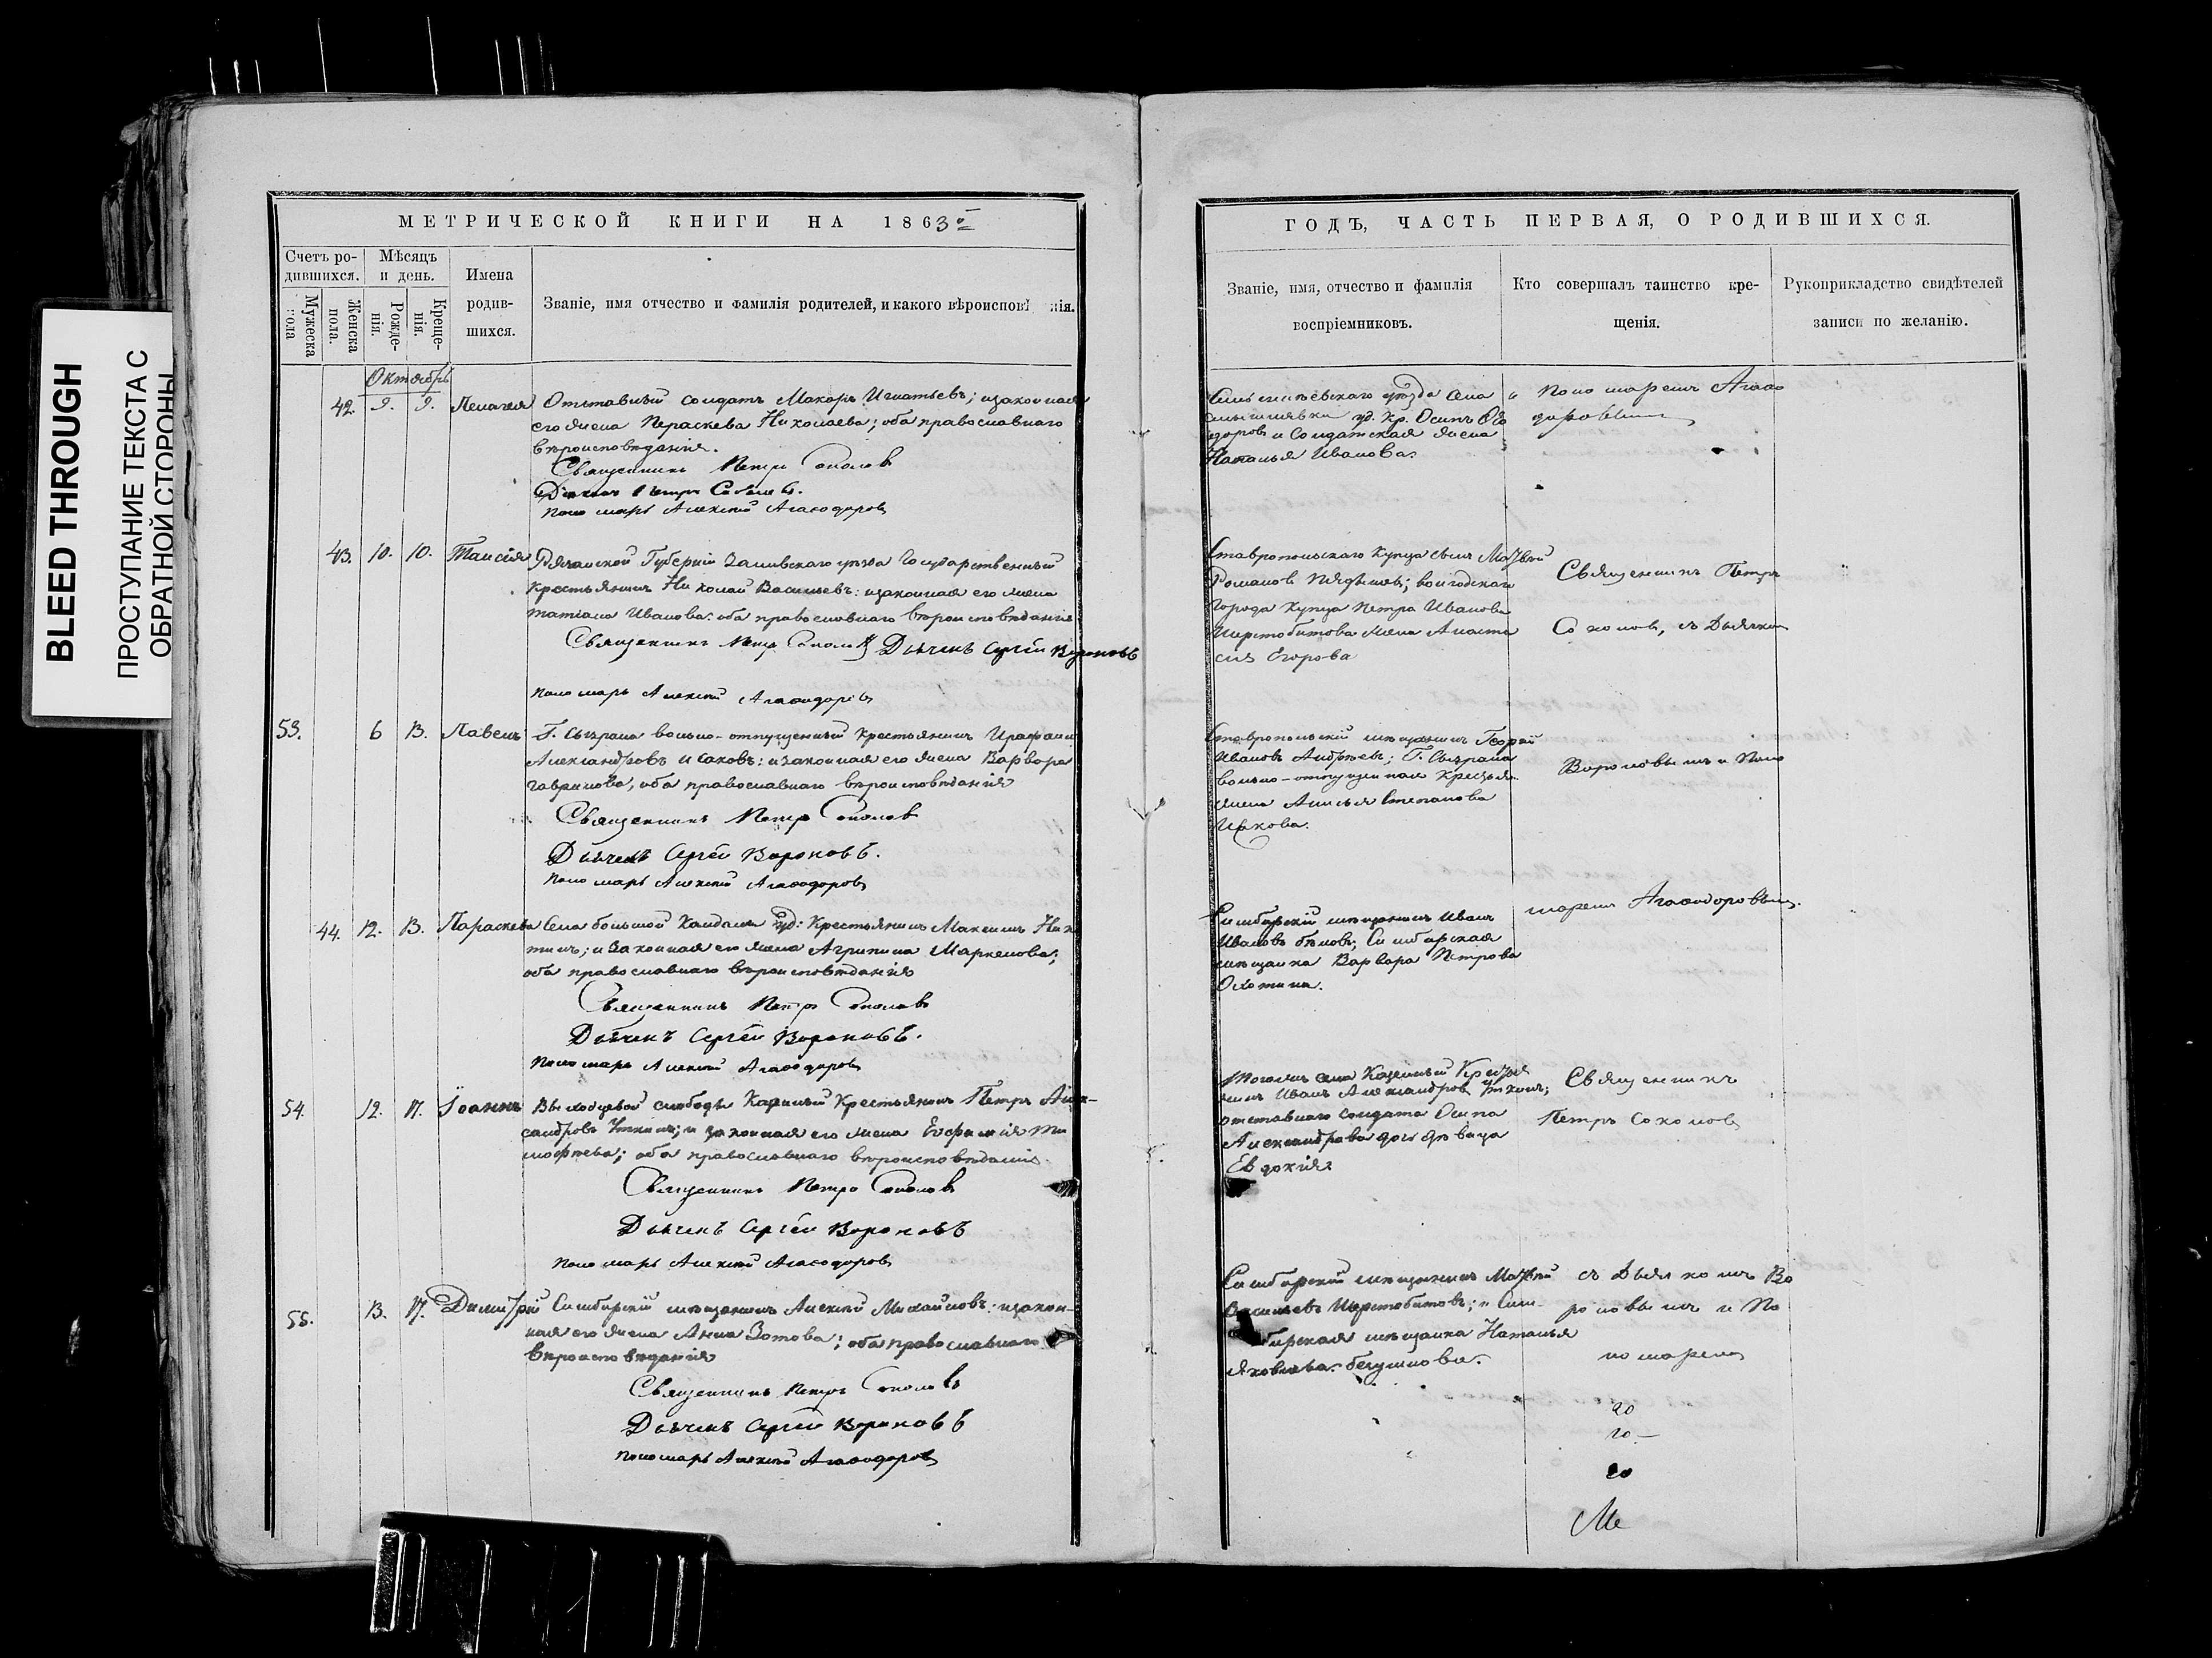 BLEED THROUGH
ПРОСТУПАНИЕ ТЕКСТА С
ОБРАТНОЙ СТОРОНЫ
МЕТРИЧЕСКОЙ КНИГИ НА 1863й
Счетъ ро-
дившихся.
Мужеска
пола
Женска
пола.
Мѣсяцъ
и день.
Рожде-
нія.
Креще-
нія.
Имена
родив-
шихся.
Званіе, имя отчество и фамилія родителей, и какого вѣроисповѣ нія.
Октябрь
42. 9. 9. Пелагея Отставный солдатъ Макаръ Игнатьевъ; изаконная
его жена Параскева Николаева; оба православнаго
вѣроисповѣданія.
Священникъ Петръ Соколов
Дьяконъ Петръ
Пономарь Алексѣй Агаѳодоровъ
43. 10. 10. Таисія Губерніи уѣзда Государственный
Крестьянинъ Николай Васильевъ: изаконная его жена
Татіана Иванова: оба православнаго вѣроисповѣданія
Священникъ Петръ Соколовъ Дьячекъ Сергѣй Вороновъ
Пономарь Алексѣй Агаѳодоровъ
53. 6 13. Павелъ Г. Сызрана вольно-отпущенный крестьянинъ
Александровъ Исаковъ: изаконная его жена Варвара
Гаврилова, оба православнаго вѣроисповѣданія
Священникъ Петръ Соколов
Дьячекъ Сергѣй Вороновъ.
Пономарь Алексѣй Агаѳодоровъ
44. 12. 13. Параскева Села большой Кандалы уд: Крестьянинъ Максимъ Ники
тинъ; изаконная его жена Агрипина Маркелова;
оба православнаго вѣроисповѣданія
Священникъ Петръ Соколовъ
Дьячекъ Сергѣй Вороновъ.
Пономарь Алексѣй Агаѳодоровъ
54. 12. 17. Іоаннъ слободы Казенный Крестьянинъ Петръ Алек-
сандровъ Уткинъ; и законная его жена Евфимія Ти
мофѣева; оба православнаго вѣроисповѣданія.
Священникъ Петръ Соколовъ
Дьячекъ Сергѣй Вороновъ
Пономарь Алексѣй Агаѳодоровъ
55. 13. 17. Димитрій Симбирскій мѣщанинъ Алексѣй Михайловъ: изакон-
ная его жена Анна Зотова; оба православнаго
вѣроисповѣданія
Священникъ Петръ Соколовъ
Дьячекъ Сергѣй Вороновъ
Пономарь Алексѣй Агаѳодоровъ
ГОДЪ, ЧАСТЬ ПЕРВАЯ, О РОДИВШИХСЯ.
Званіе, имя, отчество и фамилія
воспріемниковъ.
Кто совершалъ таинство кре-
щенія.
Рукоприкладство свидѣтелей
записи по желанію.
уѣзда села
уд. Кр. Осипъ Ѳео
доровъ и Солдатская жена
Наталья Иванова.
и Пономаремъ Агаѳо
доровымъ
Ставропольскаго Купца сынъ Матвей
Романов
города Купца Петра Иванова
Шерстобитова жена Анаста
сія Егорова
Священникъ Петръ
Соколовъ, съ Дьячком
Ставропольскій мѣщанинъ Георгій
Ивановъ Андреевъ; Г. Сызрана
вольно-отпущенная Крестья.
жена Анисья Степанова
Исакова.
Вороновымъ и Поно
Симбирскій мѣщанинъ Иванъ
Ивановъ бѣловъ; Симбирская
мѣщанка Варвара Петрова
Охотина.
маремъ Агаѳодоровымъ.
Тогожъ села Казенный Крестья
нинъ Иванъ Александров Уткинъ;
отставнаго солдата Осипа
Александрова дочь дѣвица
Евдокія
Священникъ
Петръ Соколовъ
Симбирскій мѣщанинъ Матвей
Васильевъ Шерстобитовъ; и Сим-
бирская мѣщанка Наталья
Яковлева.
съ Дьячкомъ Во
роновымъ и По
номаремъ
20
20